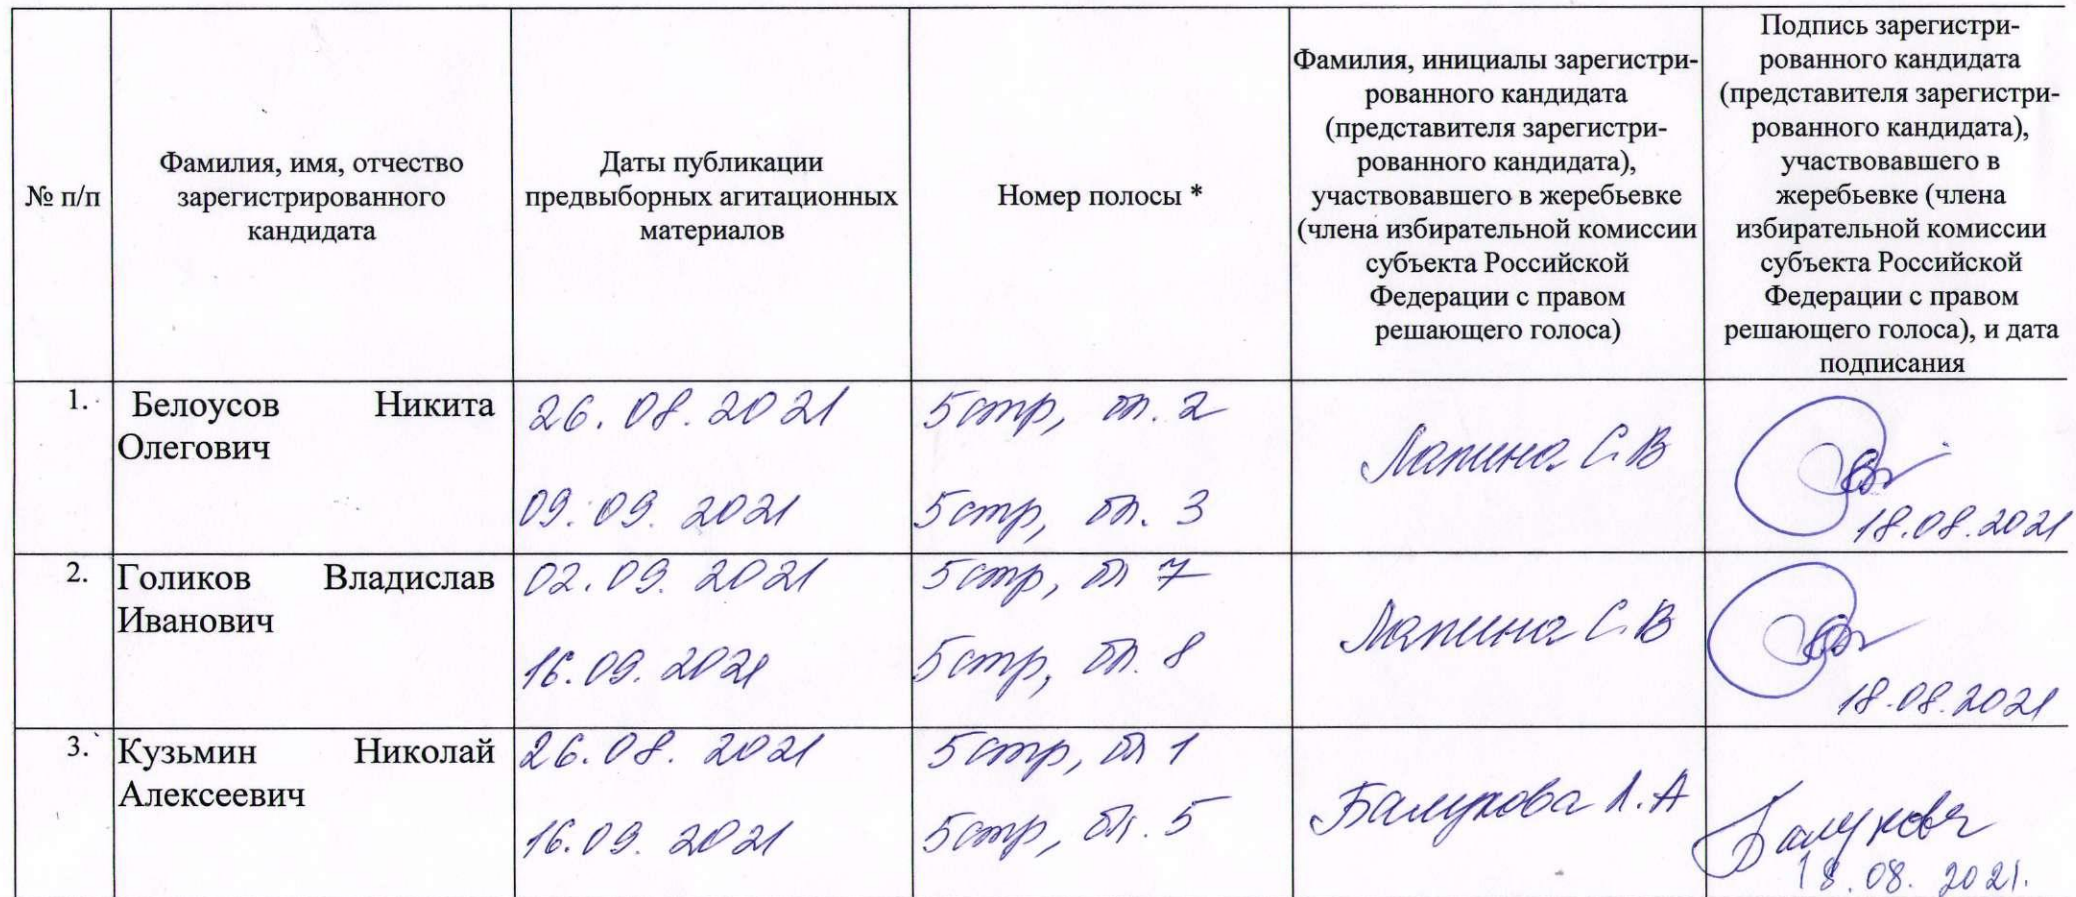 № п/п
Фамилия, имя, отчество
зарегистрированного
кандидата
Даты публикации
предвыборных агитационных
материалов
Номер полосы *
Фамилия, инициалы зарегистри-
рованного кандидата
(представителя зарегистри-
рованного кандидата),
участвовавшего в жеребьевке
(члена избирательной комиссии
субъекта Российской
Федерации с правом
решающего голоса)
Подпись зарегистри-
рованного кандидата
(представителя зарегистри-
рованного кандидата),
участвовавшего в
жеребьевке (члена
избирательной комиссии
субъекта Российской
Федерации с правом
решающего голоса), и дата
подписания
1.
Белоусов Никита
Олегович
26.08.2021
09.09.2021
5стр, бл. 2
5стр, бл. 3
Лапина С.В
18.08.2021
2.
Голиков Владислав
Иванович
02.09.2021
16.09.2021
5стр, бл 7
5стр, бл. 8
Лапина С.В
18.08.2021
3.
Кузьмин Николай
Алексеевич
26.08.2021
16.09.2021
5стр, бл 1
5стр, бл. 5
Балукова Л.А
Балукова
18.08.2021.